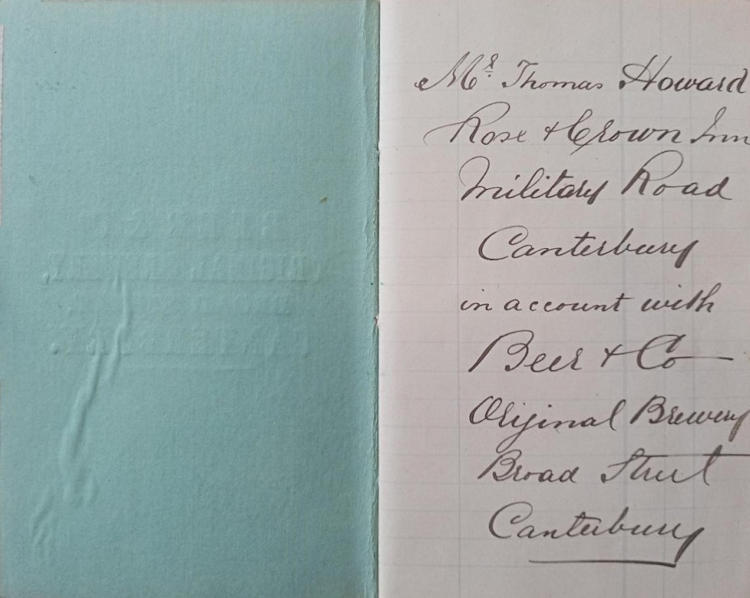 Mr Thomas Howard
Rose & Crown Inn
Military Road
Canterbury
in account with
Beer & Co
Original Brewery
Broad Street
Canterbury